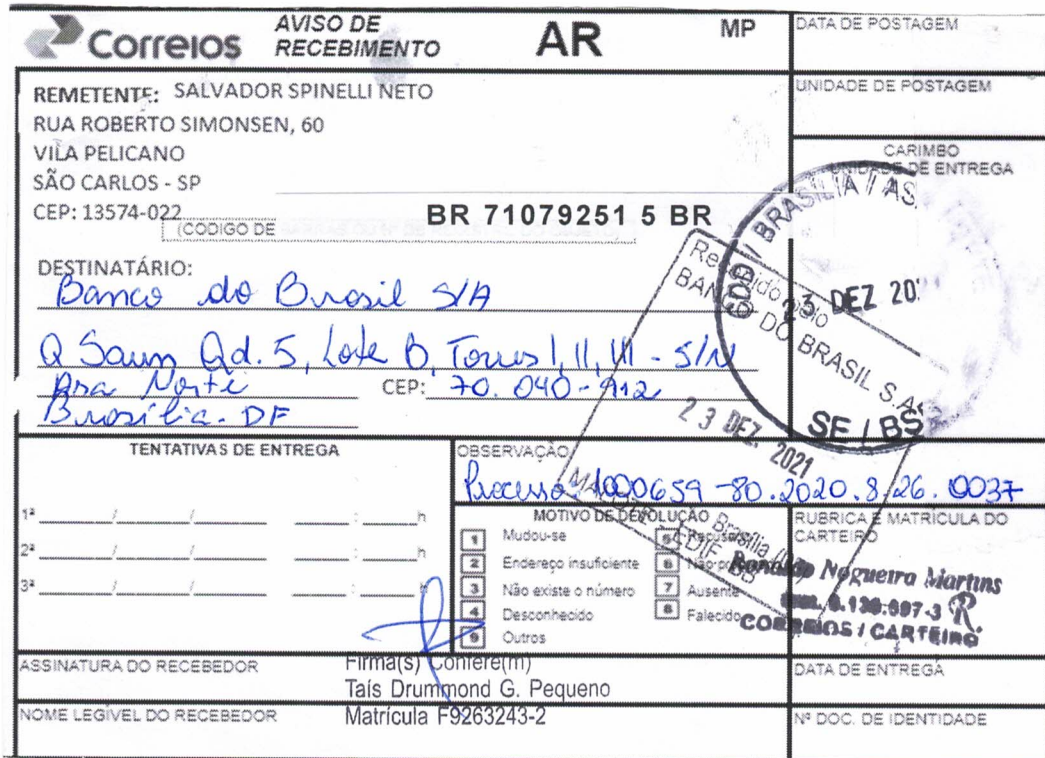 Correios
AVISO DE
RECEBIMENTO
AR
MP
DATA DE POSTAGEM
UNIDADE DE POSTAGEM
REMETENTE: SALVADOR SPINELLI NETO
RUA ROBERTO SIMONSEN, 60
VILA PELICANO
SÃO CARLOS - SP
CEP: 13574-022
(CODIGO DE
BR 71079251 5 BR
CARIMBO
UNIDADE DE ENTREGA
CDD / BRASILIA / AS
23 DEZ 202
SE / BS
DESTINATÁRIO:
Banco do Brasil S/A
Q Saun Qd. 5, Lote B, Torres I, II, III - S/N
Asa Norte
CEP: 70.040-912
Brasília - DF
Recebido pelo
BANCO DO BRASIL S.A
23 DEZ. 2021
Brasília
EDIF. BS
TENTATIVAS DE ENTREGA
1ª ____/____/____ ____:____h
2ª ____/____/____ ____:____h
3ª ____/____/____ ____:____h
OBSERVAÇÃO
Processo 1000659-80.2020.8.26.0037
MOTIVO DE DEVOLUÇÃO
1 Mudou-se
2 Endereço insuficiente
3 Não existe o número
4 Desconhecido
9 Outros
5 Recusado
6 Não
7 Ausente
8 Falecido
RUBRICA E MATRICULA DO
CARTEIRO
Nogueira Martins
CORREIOS / CARTEIRO
ASSINATURA DO RECEBEDOR
Firma(s) Confere(m)
Taís Drummond G. Pequeno
Matrícula F9263243-2
DATA DE ENTREGA
NOME LEGÍVEL DO RECEBEDOR
Nº DOC. DE IDENTIDADE